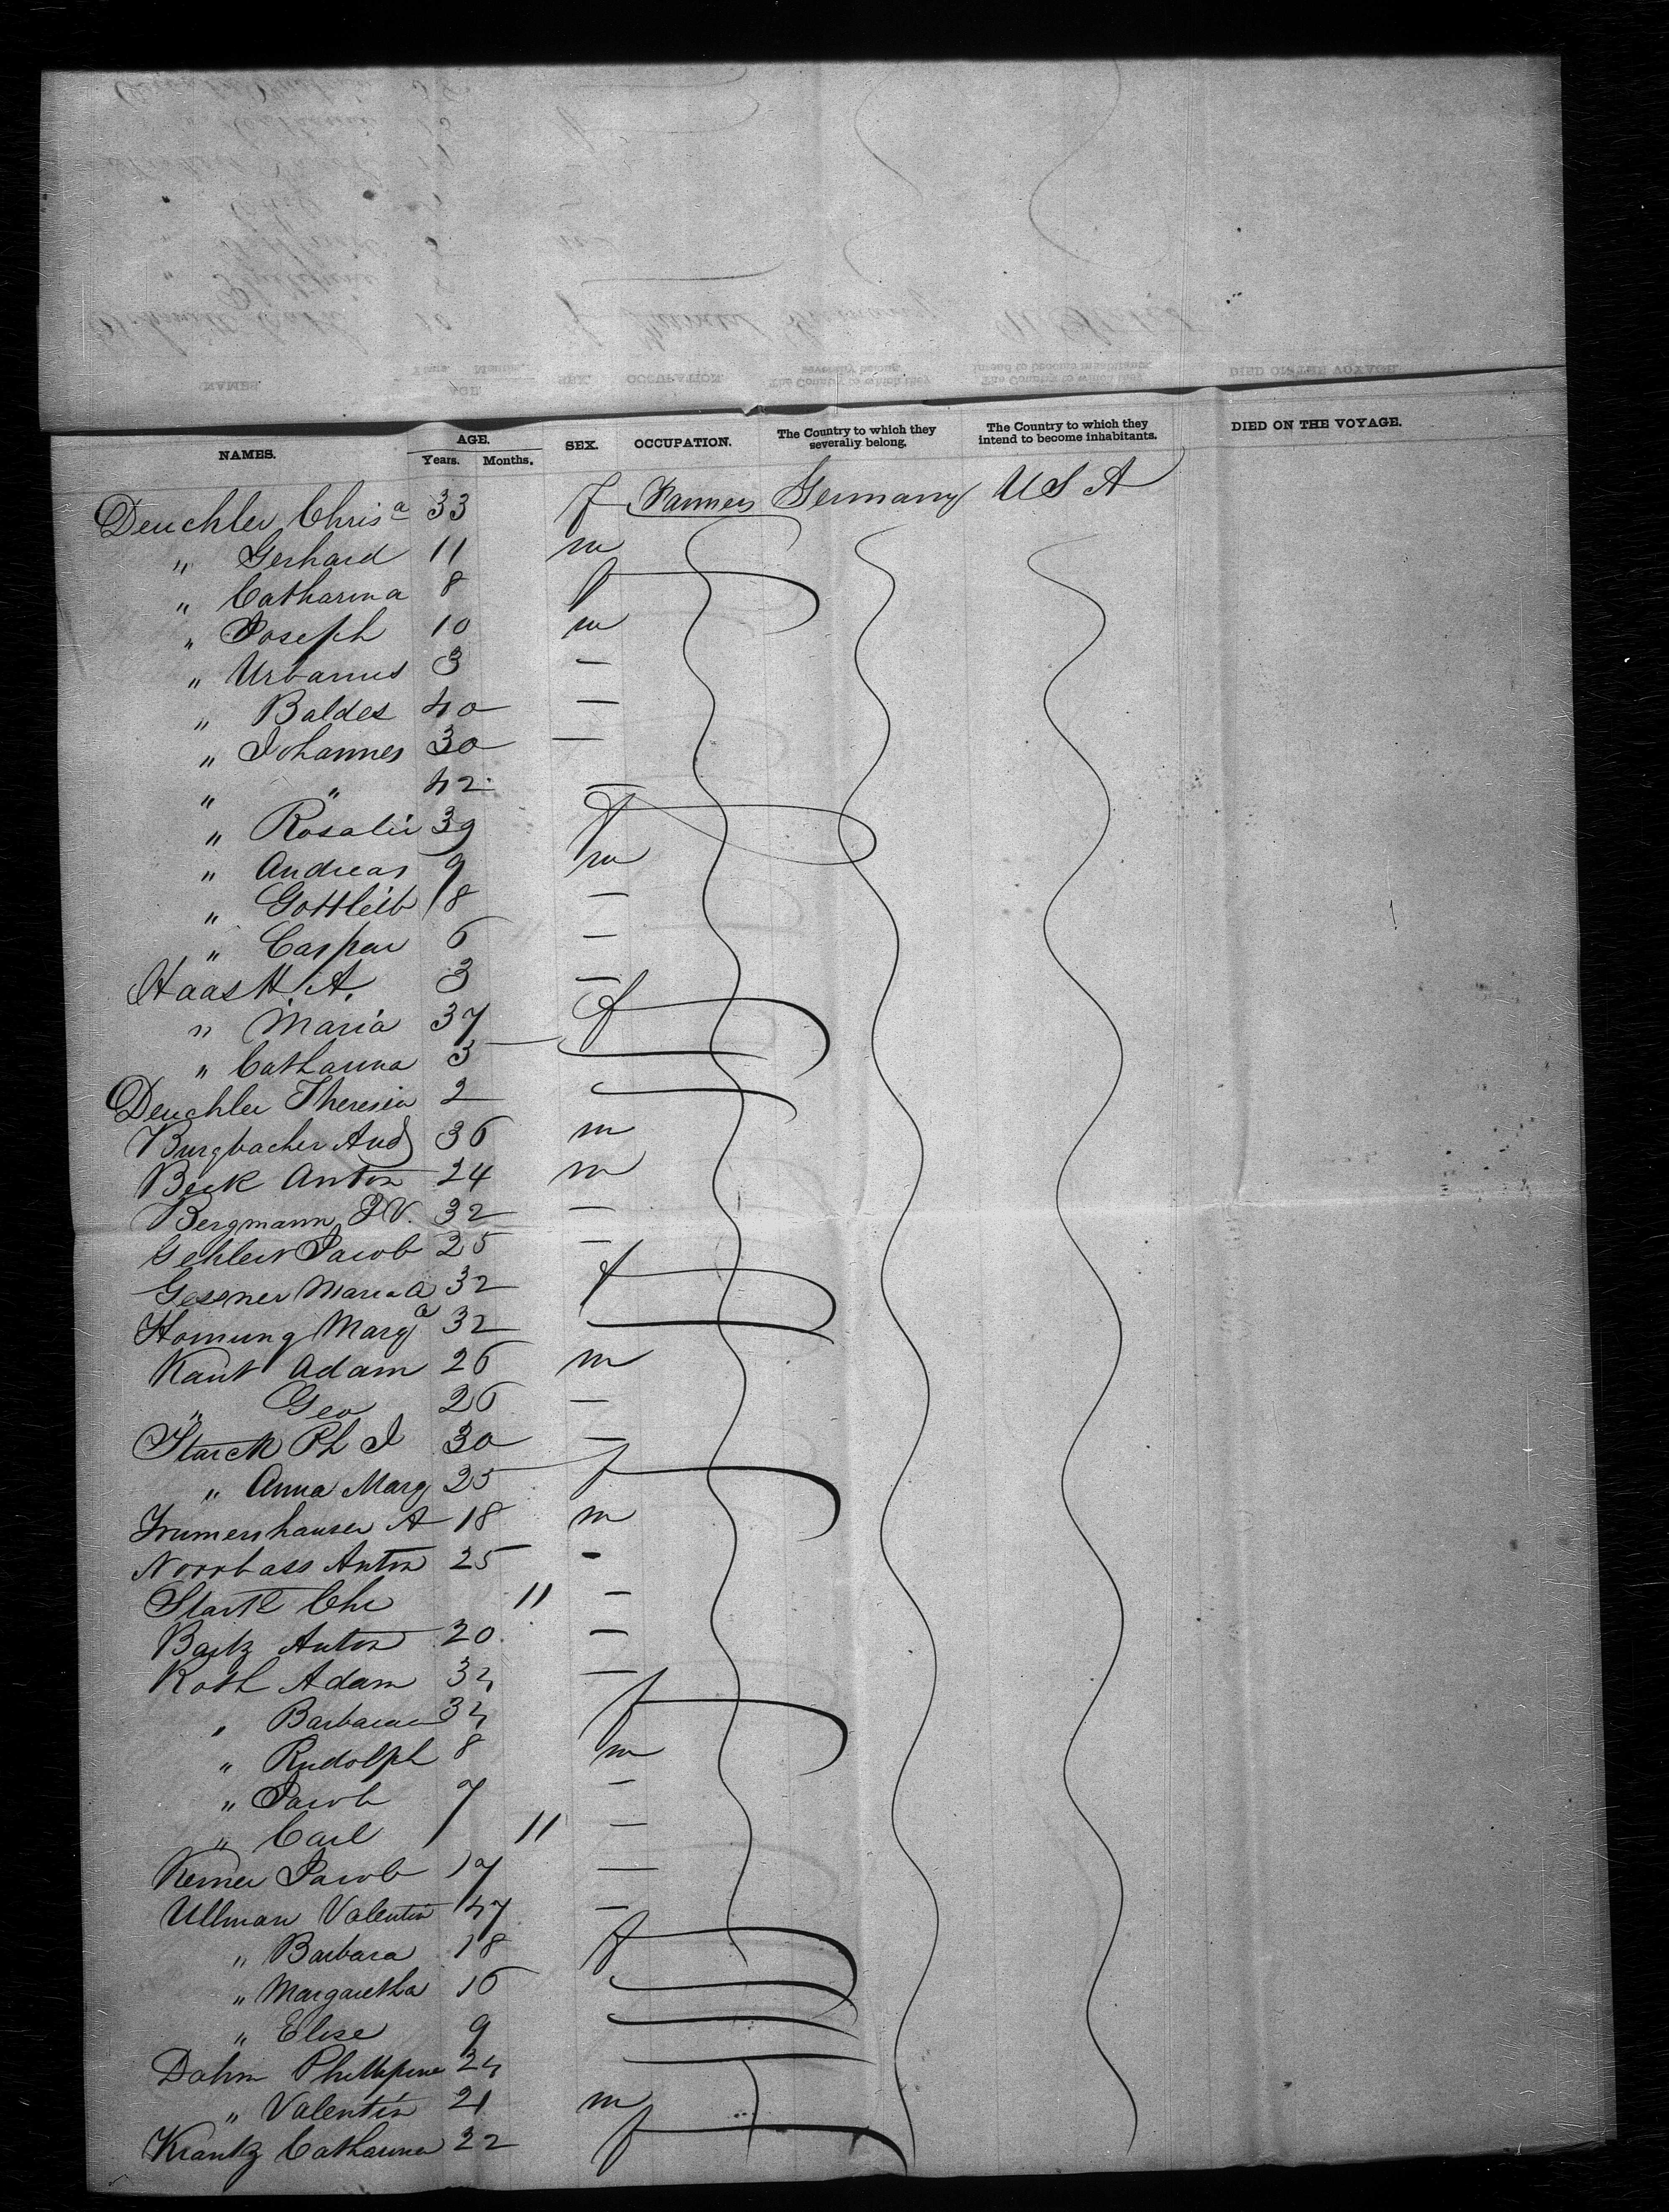 NAMES. AGE. Years. Months. SEX. OCCUPATION. The Country to which they severally belong. The Country to which they intend to become inhabitants. DIED ON THE VOYAGE.
Deuchler Chris a 33 f Farmers Germany U S A
" Gerhard 11 m
" Catharina 8 f
" Joseph 10 m
" Urbanus 3 —
" Baldes 40 —
" Johannes 30 —
" " 42 —
" Rosalie 39 f
" Andreas 9 m
" Gottleib 18 —
" Caspar 6 —
Haas H. A. 3 —
" Maria 37 f
" Catharina 3
Deuchler Theresia 2
Burgbacher And 36 m
Beck Anton 24 m
Bergmann J V. 32 —
Jacob 25 —
Gessner Maria a 32 f
Hornung Marg a 32
Kaut Adam 26 m
" Geo 26 —
Starck Ph J 30 —
" Anna Marg 25 f
A 18 m
Anton 25 -
Stark Chr 11 —
Bartz Anton 20 —
Roth Adam 34 —
" Barbara 34 f
" Rudolph 8 m
" Jacob 7 —
" Carl 1 11 —
Jacob 17 —
Ullman Valentin 47 —
" Barbara 18 f
" Margaretha 16
" Elise 9
Dahm Phillipine 24
" Valentin 21 m
Krantz Catharina 22 f